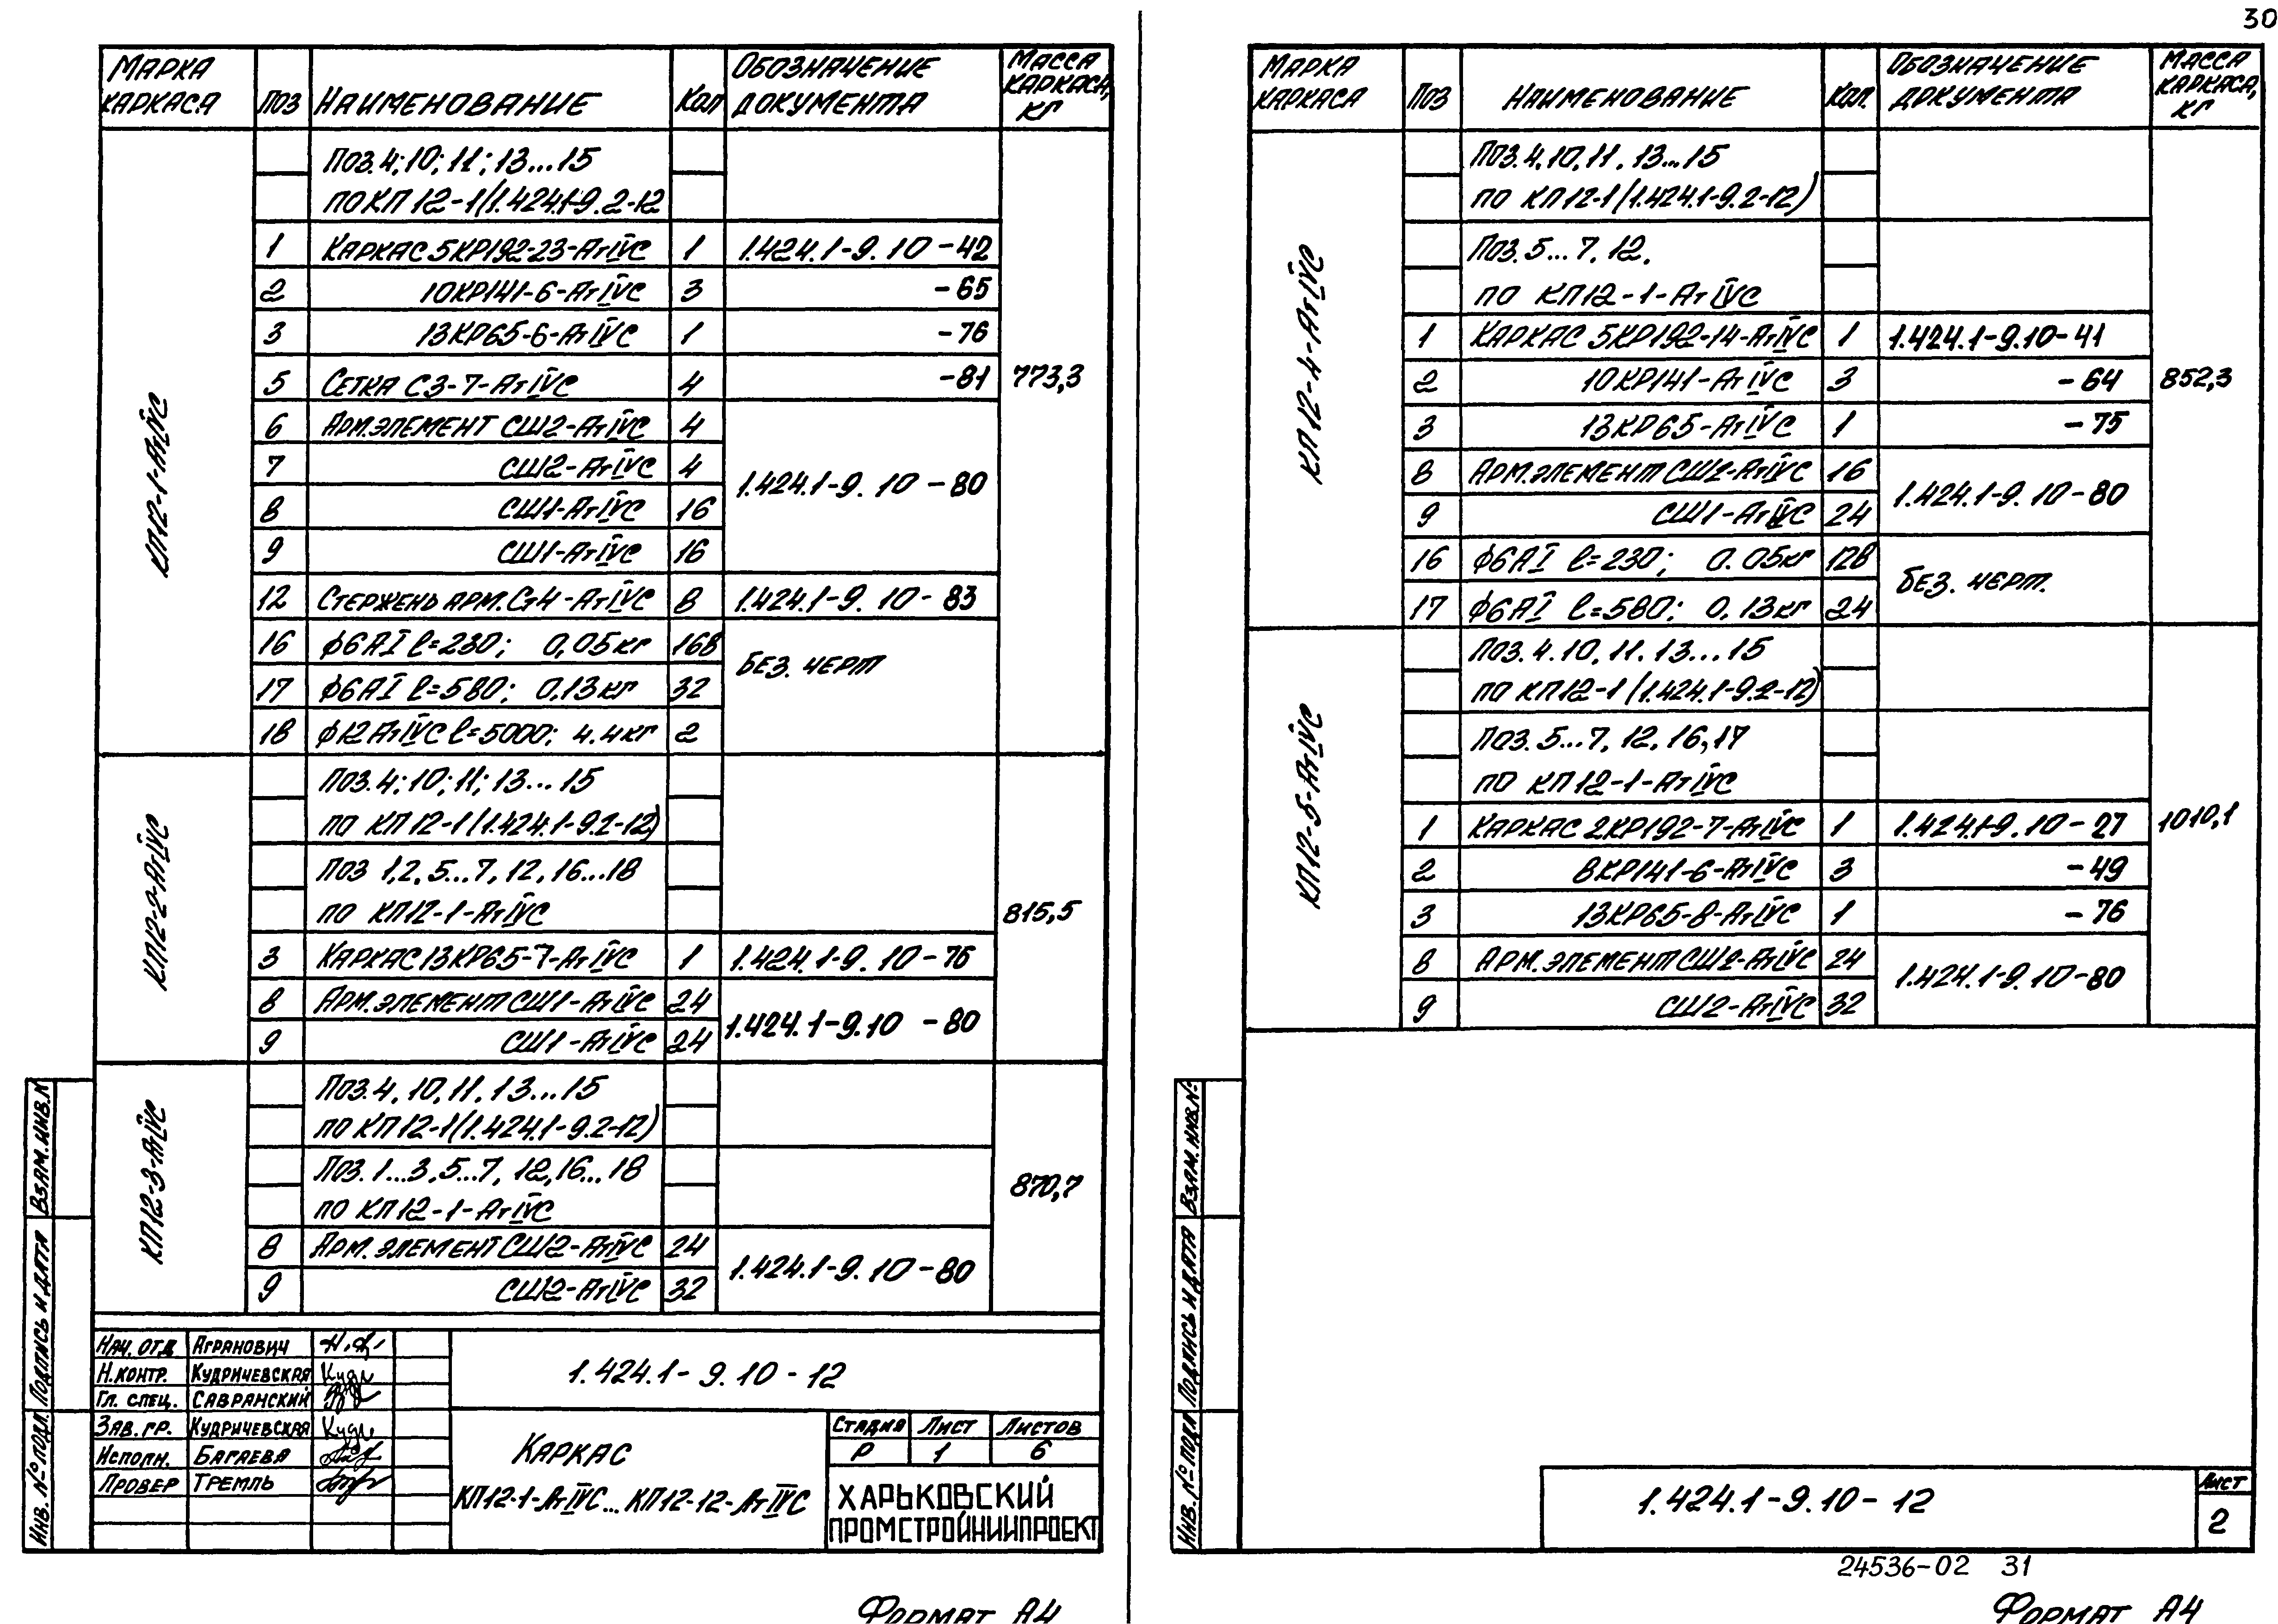 30
МАРКА КАРКАСА ПОЗ НАИМЕНОВАНИЕ КОЛ ОБОЗНАЧЕНИЕ ДОКУМЕНТА МАССА КАРКАСА, КГ
КП12-1-АтIVС
ПОЗ. 4; 10; 11; 13...15
ПО КП 12-1/1.424.1-9.2-12
1 КАРКАС 5КР192-23-АтIVС 1 1.424.1-9.10-42
2 10КР141-6-АтIVС 3 -65
3 13КР65-6-АтIVС 1 -76
5 СЕТКА С3-7-АтIVС 4 -81 773,3
6 АРМ.ЭЛЕМЕНТ СШ2-АтIVС 4
7 СШ2-АтIVС 4
1.424.1-9.10-80
8 СШ1-АтIVС 16
9 СШ1-АтIVС 16
12 СТЕРЖЕНЬ АРМ.Ст4-АтIVС 8 1.424.1-9.10-83
16 ϕ6АI ℓ=230; 0,05кг 168
БЕЗ. ЧЕРТ
17 ϕ6АI ℓ=580; 0.13кг 32
18 ϕ12АтIVС ℓ=5000; 4.4кг 2
КП12-2-АтIVС
ПОЗ. 4; 10; 11; 13...15
ПО КП 12-1/1.424.1-9.2-12)
ПОЗ 1,2,5...7, 12, 16...18
ПО КП12-1-АтIVС
815,5
3 КАРКАС 13КР65-7-АтIVС 1 1.424.1-9.10-76
8 АРМ.ЭЛЕМЕНТ СШ1-АтIVС 24
1.424.1-9.10-80
9 СШ1-АтIVС 24
КП12-3-АтIVС
ПОЗ. 4, 10, 11, 13...15
ПО КП 12-1/(1.424.1-9.2-12)
ПОЗ. 1...3, 5...7, 12, 16...18
870,7
ПО КП 12-1-АтIVС
8 АРМ. ЭЛЕМЕНТ СШ2-АтIVС 24
1.424.1-9.10-80
9 СШ2-АтIVС 32
НАЧ. ОТД АГРАНОВИЧ
Н.КОНТР. КУДРИЧЕВСКАЯ
ГЛ. СПЕЦ. САВРАНСКИЙ
ЗАВ. ГР. КУДРИЧЕВСКАЯ
ИСПОЛН. БАГАЕВА
ПРОВЕР ТРЕМЛЬ
1.424.1-9.10-12
КАРКАС
КП12-1-АтIVС...КП12-12-АтIVС
СТАДИЯ ЛИСТ ЛИСТОВ
Р 1 6
ХАРЬКОВСКИЙ
ПРОМСТРОЙНИИПРОЕКТ
ВЗАМ. ИНВ.N
ПОДПИСЬ И ДАТА
ИНВ. № ПОДЛ.
ФОРМАТ А4
МАРКА КАРКАСА ПОЗ НАИМЕНОВАНИЕ КОЛ. ОБОЗНАЧЕНИЕ ДОКУМЕНТА МАССА КАРКАСА, КГ
КП12-4-АтIVС
ПОЗ. 4, 10, 11, 13...15
ПО КП12-1/(1.424.1-9.2-12)
ПОЗ. 5...7, 12.
ПО КП12-1-АтIVС
1 КАРКАС 5КР192-14-АтIVС 1 1.424.1-9.10-41
2 10КР141-АтIVС 3 -64 852,3
3 13КР65-АтIVС 1 -75
8 АРМ.ЭЛЕМЕНТ СШ2-АтIVС 16
1.424.1-9.10-80
9 СШ1-АтIVС 24
16 ϕ6АI ℓ=230; 0.05кг 128
БЕЗ. ЧЕРТ.
17 ϕ6АI ℓ=580; 0.13кг 24
КП12-5-АтIVС
ПОЗ. 4. 10, 11. 13...15
ПО КП12-1/(1.424.1-9.2-12)
ПОЗ. 5...7, 12, 16, 17
ПО КП12-1-АтIVС
1 КАРКАС 2КР192-7-АтIVС 1 1.424.1-9.10-27 1010,1
2 8КР141-6-АтIVС 3 -49
3 13КР65-8-АтIVС 1 -76
8 АРМ. ЭЛЕМЕНТ СШ2-АтIVС 24
1.424.1-9.10-80
9 СШ2-АтIVС 32
ВЗАМ. ИНВ.№
ПОДПИСЬ И ДАТА
ИНВ. № ПОДЛ
1.424.1-9.10-12
ЛИСТ
2
24536-02 31
ФОРМАТ А4